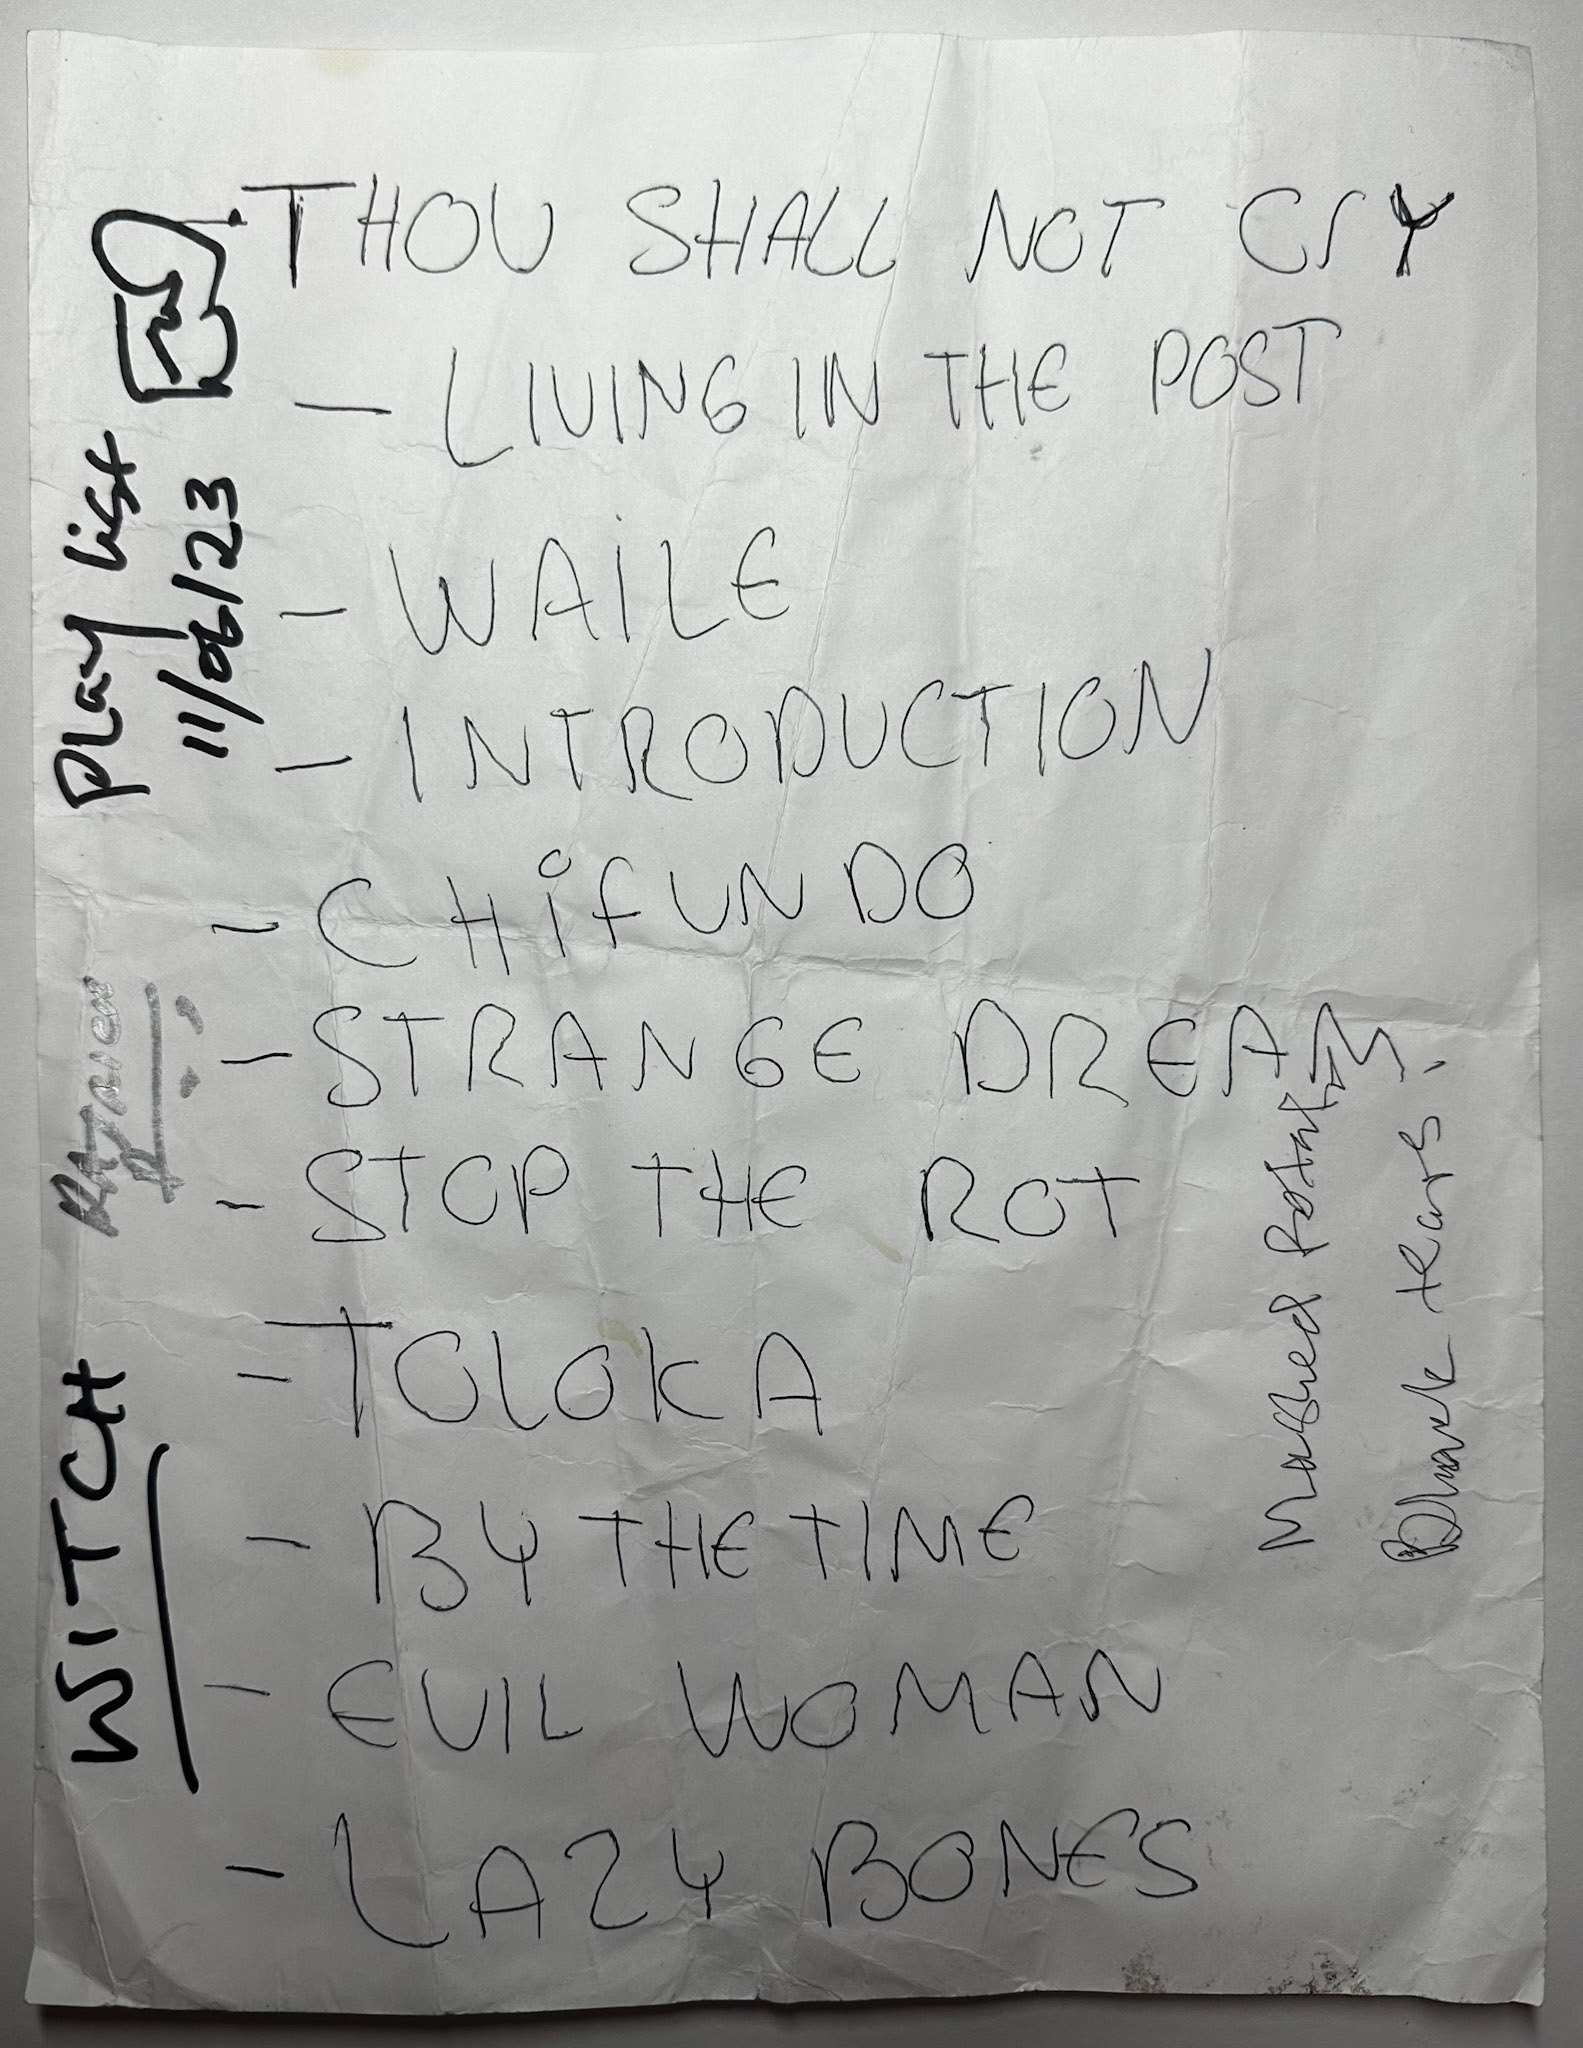 THOU SHALL NOT CrY
- LIVING IN THE POST
- WAILE
- INTRODUCTION
- CHiFUNDO
- STRANGE DREAM
- STOP THE ROT
- TOLOKA
- BY THE TIME
- EVIL WOMAN
- LAZY BONES
WITCH
Play List
11/06/23
Mashed Potato
Black tears.